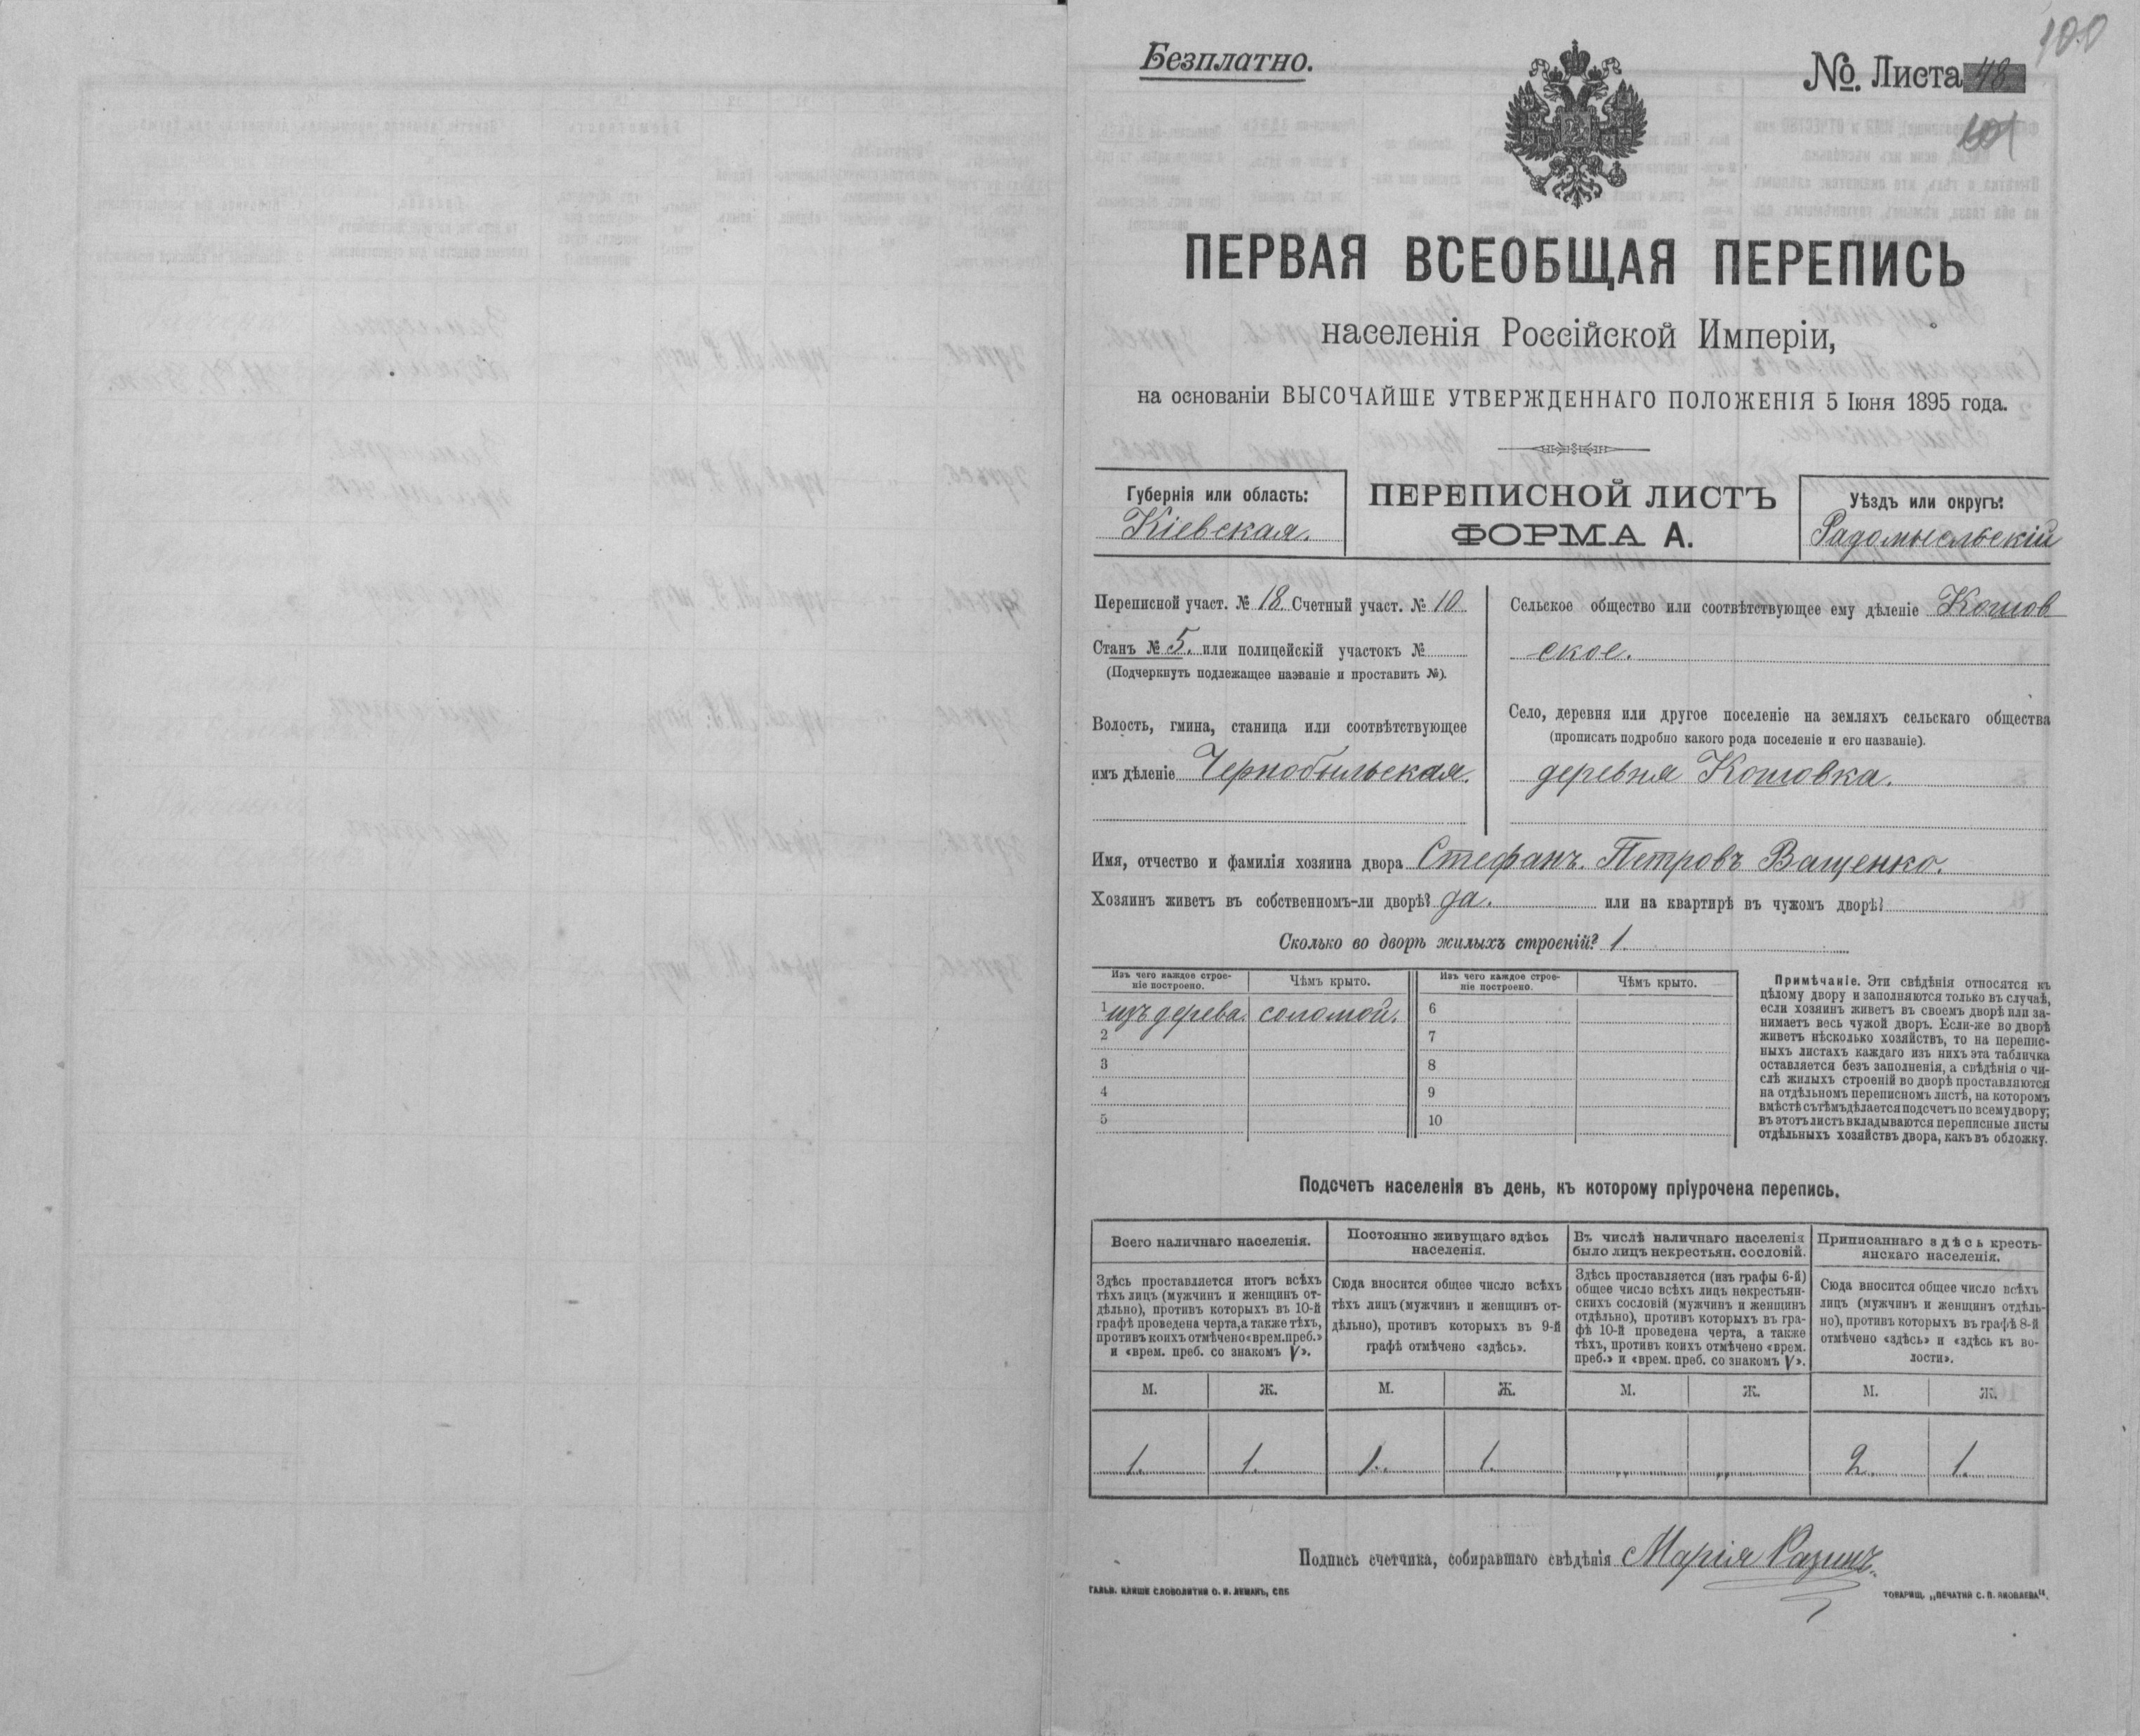 100
Безплатно.
№ Листа 48
101
ПЕРВАЯ ВСЕОБЩАЯ ПЕРЕПИСЬ
населенія Россійской Имперіи,
на основаніи ВЫСОЧАЙШЕ УТВЕРЖДЕННАГО ПОЛОЖЕНІЯ 5 Іюня 1895 года.
Губернія или область:
Кіевская.
ПЕРЕПИСНОЙ ЛИСТЪ
ФОРМА А.
Уѣздъ или округъ:
Радомысльскій
Переписной участ. № 18. Счетный участ. № 10
Станъ № 5. или полицейскій участокъ №
(Подчеркнуть подлежащее названіе и проставить №).
Волость, гмина, станица или соотвѣтствующее
имъ дѣленіе Чернобыльская.
Сельское общество или соотвѣтствующее ему дѣленіе Кошов
ское.
Село, деревня или другое поселеніе на земляхъ сельскаго общества
(прописать подробно какого рода поселеніе и его названіе).
деревня Кошовка.
Имя, отчество и фамилія хозяина двора Стефанъ. Петровъ Ващенко.
Хозяинъ живетъ въ собственномъ-ли дворѣ? да. или на квартирѣ въ чужомъ дворѣ?
Сколько во дворѣ жилыхъ строеній? 1.
Изъ чего каждое строе-
ніе построено.
Чѣмъ крыто.
Изъ чего каждое строе-
ніе построено.
Чѣмъ крыто.
1 изъ дерева. соломой. 6
2 7
3 8
4 9
5 10
Примѣчаніе. Эти свѣдѣнія относятся къ
цѣлому двору и заполняются только въ случаѣ,
если хозяинъ живетъ въ своемъ дворѣ или за-
нимаетъ весь чужой дворъ. Если-же во дворѣ
живетъ нѣсколько хозяйствъ, то на перепис-
ныхъ листахъ каждаго изъ нихъ эта табличка
оставляется безъ заполненія, а свѣдѣнія о чи-
слѣ жилыхъ строеній во дворѣ проставляются
на отдѣльномъ переписномъ листѣ, на которомъ
вмѣстѣ съ тѣмъ дѣлается подсчетъ по всему двору;
въ этотъ листъ вкладываются переписные листы
отдѣльныхъ хозяйствъ двора, какъ въ обложку.
Подсчетъ населенія въ день, къ которому пріурочена перепись.
Всего наличнаго населенія.
Здѣсь проставляется итогъ всѣхъ
тѣхъ лицъ (мужчинъ и женщинъ от-
дѣльно), противъ которыхъ въ 10-й
графѣ проведена черта, а также тѣхъ,
противъ коихъ отмѣчено «врем. преб.»
и «врем. преб. со знакомъ V».
Постоянно живущаго здѣсь
населенія.
Сюда вносится общее число всѣхъ
тѣхъ лицъ (мужчинъ и женщинъ от-
дѣльно), противъ которыхъ въ 9-й
графѣ отмѣчено «здѣсь».
Въ числѣ наличнаго населенія
было лицъ некрестьян. сословій.
Здѣсь проставляется (изъ графы 6-й)
общее число всѣхъ лицъ некрестьян-
скихъ сословій (мужчинъ и женщинъ
отдѣльно), противъ которыхъ въ гра-
фѣ 10-й проведена черта, а также
тѣхъ, противъ коихъ отмѣчено «врем.
преб.» и «врем. преб. со знакомъ V».
Приписаннаго здѣсь кресть-
янскаго населенія.
Сюда вносится общее число всѣхъ
лицъ (мужчинъ и женщинъ отдѣль-
но), противъ которыхъ въ графѣ 8-й
отмѣчено «здѣсь» и «здѣсь къ во-
лости».
М. Ж. М. Ж. М. Ж. М. Ж.
1. 1. 1. 1. „ „ 2. 1.
Подпись счетчика, собиравшаго свѣдѣнія Марія
ГАЛЬВ. КЛИШЕ СЛОВОЛИТНИ О. И. ЛЕМАНЪ, СПБ
ТОВАРИЩ. „ПЕЧАТНИ С. П. ЯКОВЛЕВА“.